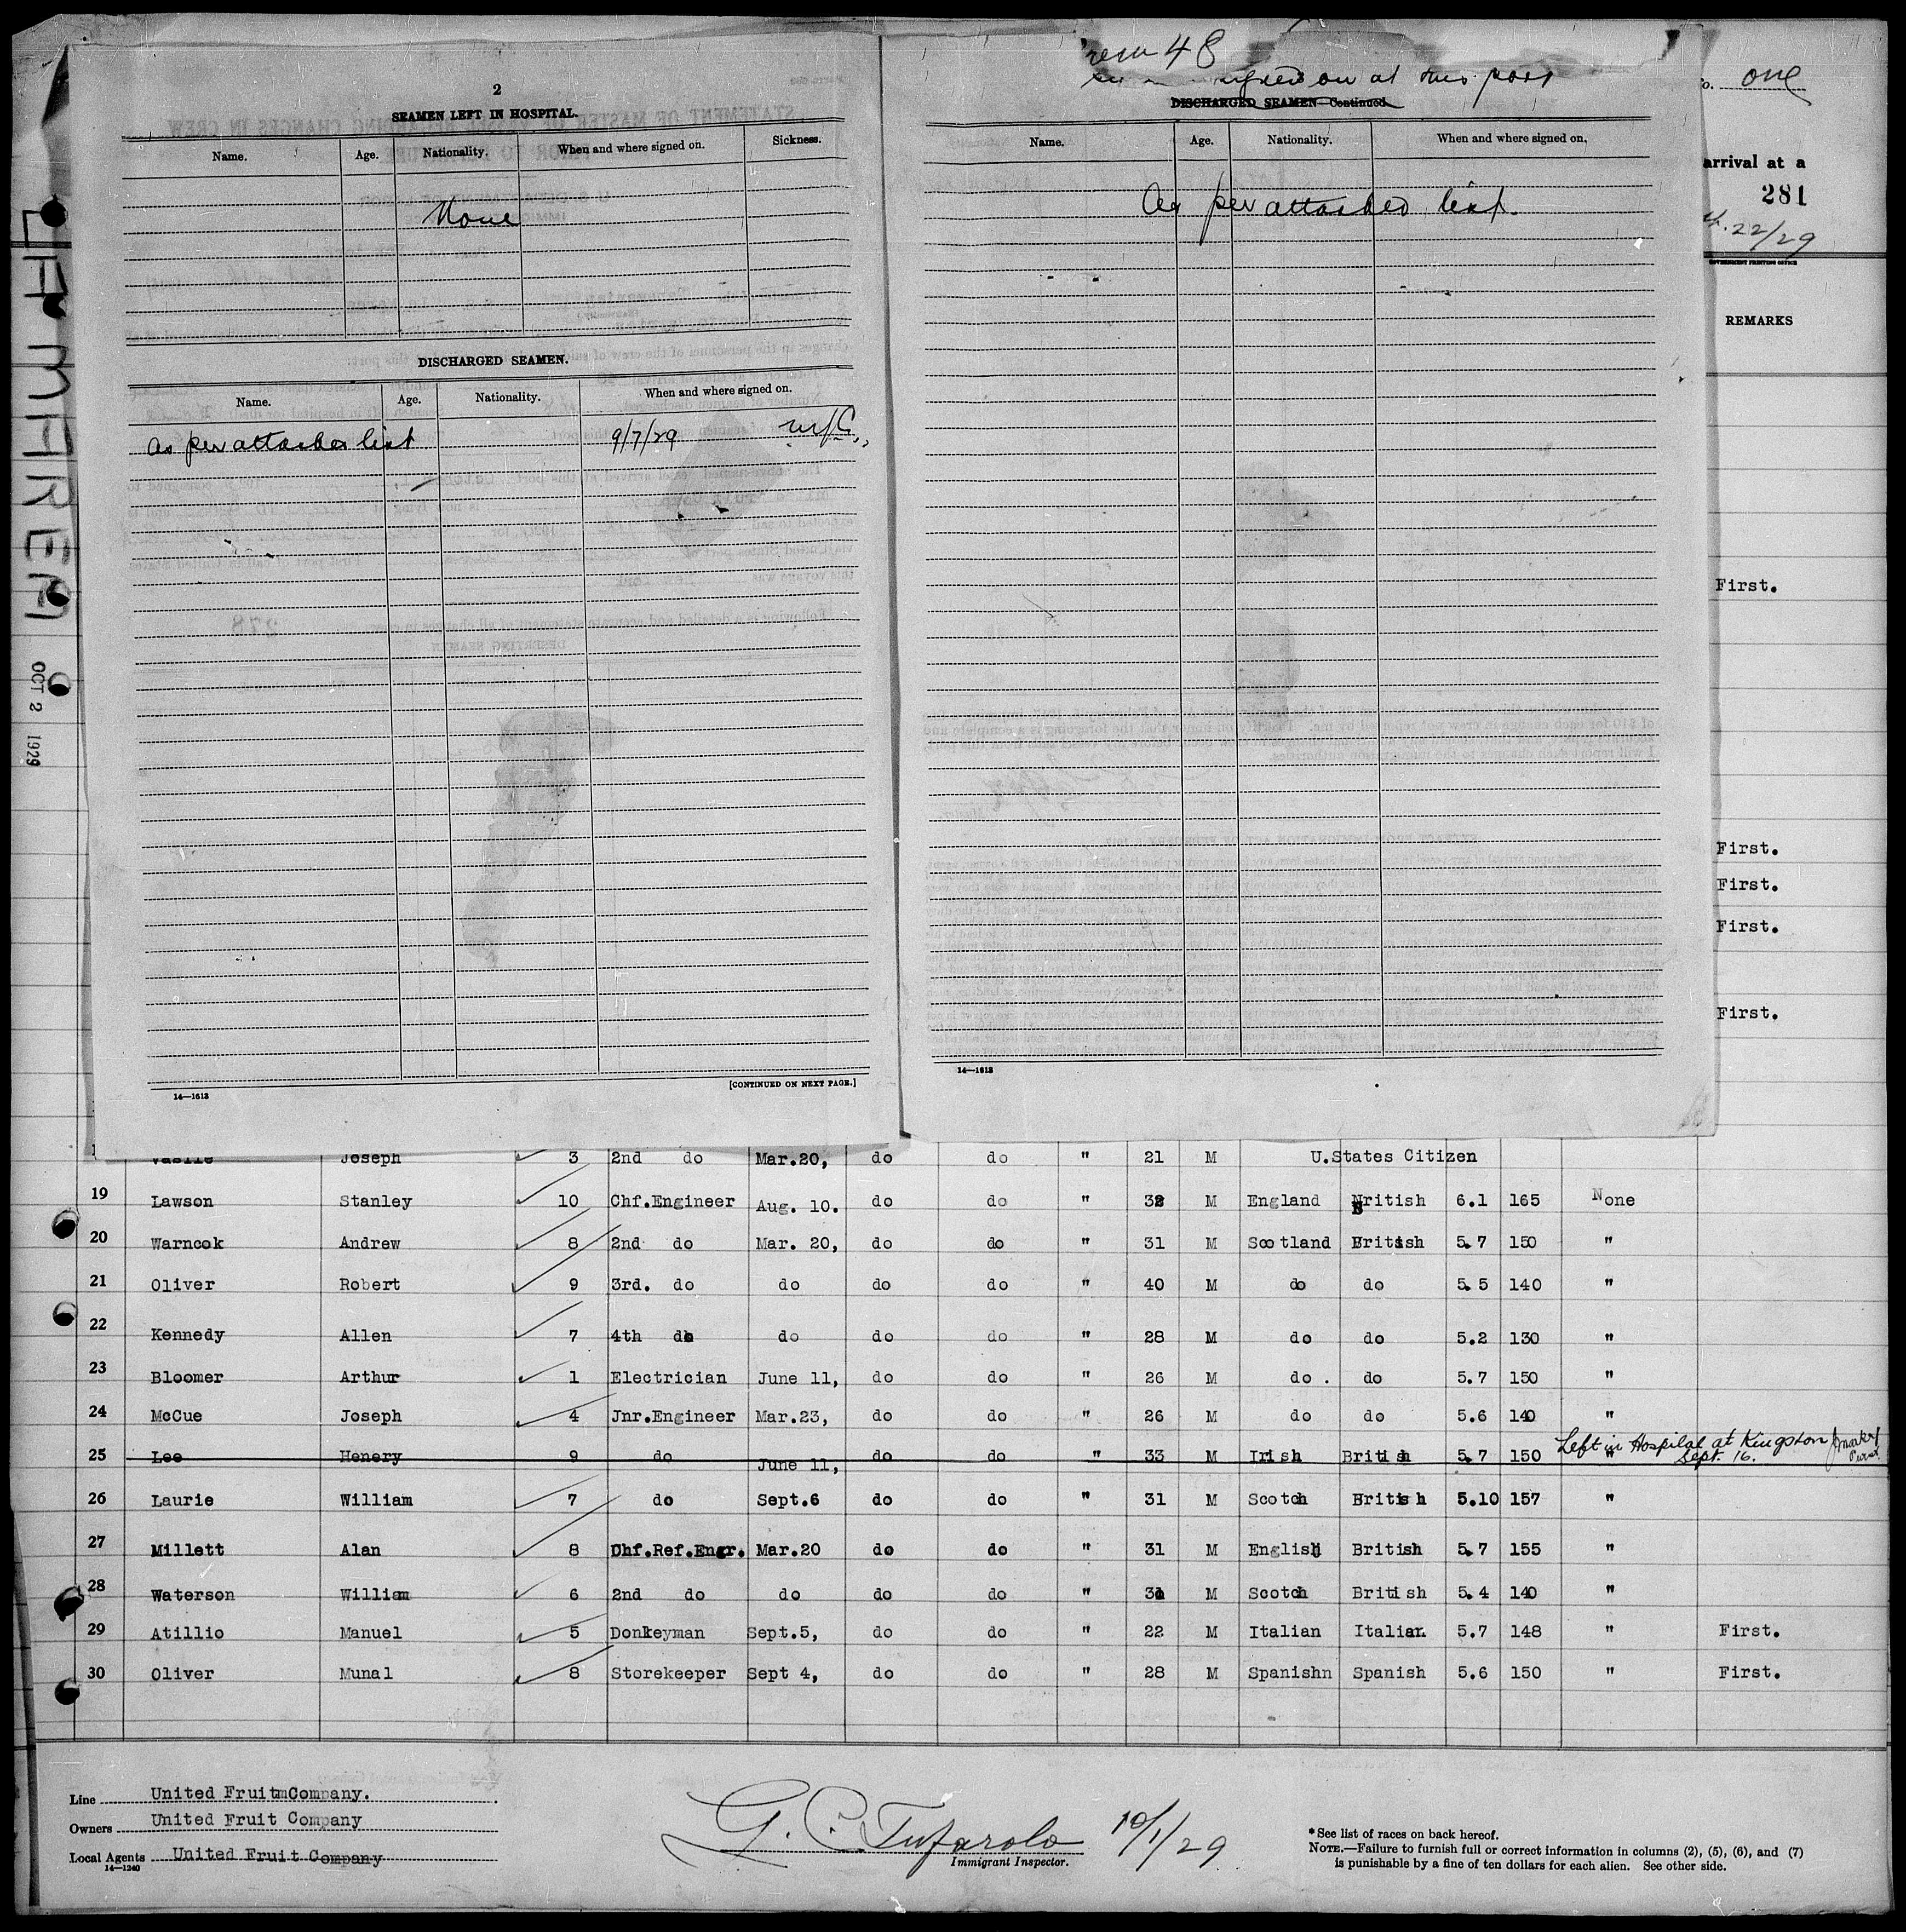 2
SEAMEN LEFT IN HOSPITAL.
Name. Age. Nationality. When and where signed on. Sickness.
None
DISCHARGED SEAMEN.
Name. Age. Nationality. When and where signed on.
As per attached list 9/7/29
14—1613 [CONTINUED ON NEXT PAGE.]
48
signed on at this port
DISCHARGED SEAMEN—Continued.
Name. Age. Nationality. When and where signed on.
As per attached list.
14—1613
one
arrival at a
281
22/29
GOVERNMENT PRINTING OFFICE
REMARKS
First.
First.
First.
First.
First.
LA MAREA
OCT 2 1929
Vasile Joseph 3 2nd do Mar.20, do do " 21 M U.States Citizen
19 Lawson Stanley 10 Chf.Engineer Aug. 10. do do " 32 M England British 6.1 165 None
20 Warncok Andrew 8 2nd do Mar. 20, do do " 31 M Scotland British 5.7 150 "
21 Oliver Robert 9 3rd. do do do do " 40 M do do 5.5 140 "
22 Kennedy Allen 7 4th do do do do " 28 M do do 5.2 130 "
23 Bloomer Arthur 1 Electrician June 11, do do " 26 M do . do 5.7 150 "
24 McCue Joseph 4 Jnr.Engineer Mar.23, do do " 26 M do do 5.6 140 "
25 Lee Henery 9 do June 11, do do " 33 M Irish British 5.7 150 " Left in Hospital at Kingston Sept. 16.
26 Laurie William 7 do Sept.6 do do " 31 M Scotch British 5.10 157 "
27 Millett Alan 8 Chf.Ref.Engr. Mar.20 do do " 31 M English British 5.7 155 "
28 Waterson William 6 2nd do do do do " M Scotch British 5.4 140 "
29 Atillio Manuel 5 Donkeyman Sept.5, do do " 22 M Italian Italian 5.7 148 " First.
30 Oliver Munal 8 Storekeeper Sept 4, do do " 28 M Spanishn Spanish 5.6 150 " First.
Line United FruitmCompany.
Owners United Fruit Company
Local Agents United Fruit Company
14—1240
G. C. Tufarolo 10/1/29
Immigrant Inspector.
*See list of races on back hereof.
NOTE.—Failure to furnish full or correct information in columns (2), (5), (6), and (7)
is punishable by a fine of ten dollars for each alien. See other side.